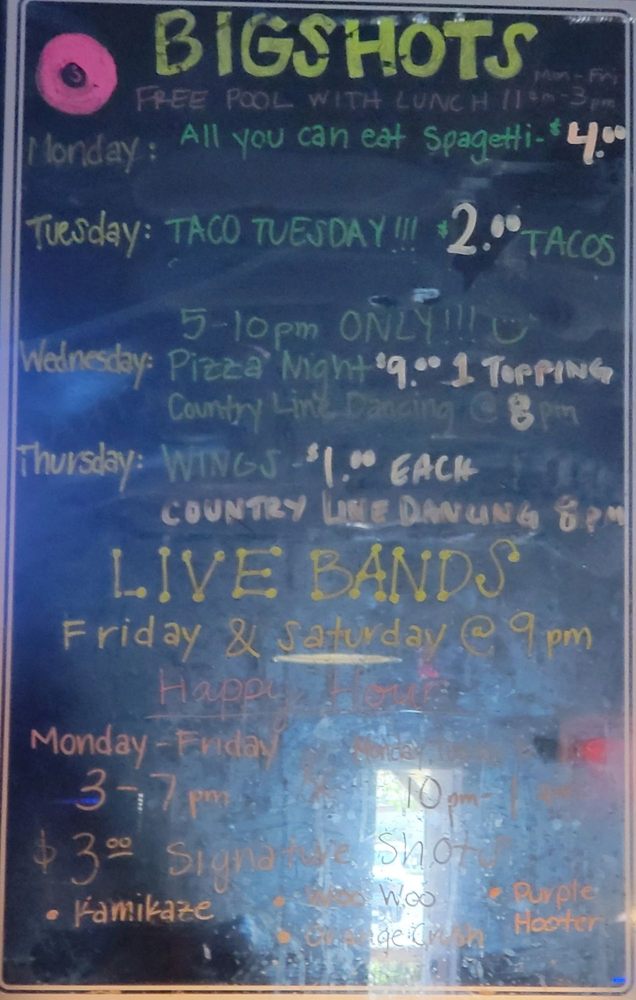 BIGSHOTS
Mon-Fri
FREE POOL WITH LUNCH 11am-3pm
Monday: All you can eat Spagetti-$4.00
Tuesday: TACO TUESDAY!!! $2.00 TACOS
5-10pm ONLY!!!
Wednesday: Pizza Night $9.00 1 TOPPING
Country Line Dancing @ 8pm
Thursday: WINGS-$1.00 EACH
COUNTRY LINE DANCING 8PM
LIVE BANDS
Friday & Saturday @ 9pm
Happy Hour
Monday-Friday
3-7pm
Monday
10pm-1
$3.00 Signature Shots
• Kamikaze
• Woo Woo
• Orange Crush
• Purple Hooter